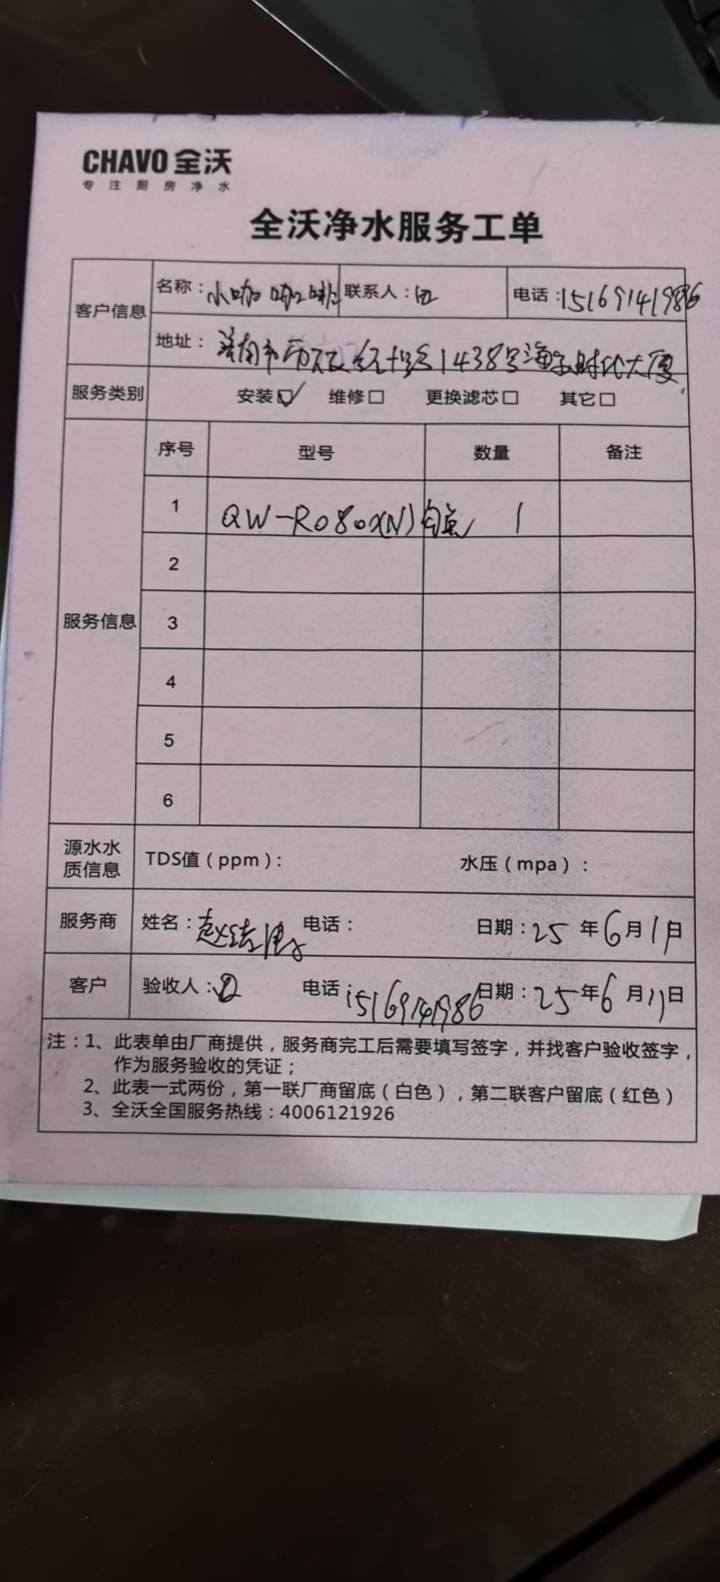 CHAVO 全沃
专注厨房净水
全沃净水服务工单
客户信息 名称：小咖咖啡 联系人：田 电话：15169141986
地址：济南市历下区经十路1438号海尔时代大厦
服务类别 安装☑ 维修□ 更换滤芯□ 其它□
服务信息 序号 型号 数量 备注
1 QW-RO80X(N) 1
2
3
4
5
6
源水水质信息 TDS值（ppm）： 水压（mpa）：
服务商 姓名：赵 电话： 日期：25年6月1日
客户 验收人： 电话 15169141986 日期：25年6月11日
注：1、此表单由厂商提供，服务商完工后需要填写签字，并找客户验收签字，
作为服务验收的凭证；
2、此表一式两份，第一联厂商留底（白色），第二联客户留底（红色）
3、全沃全国服务热线：4006121926